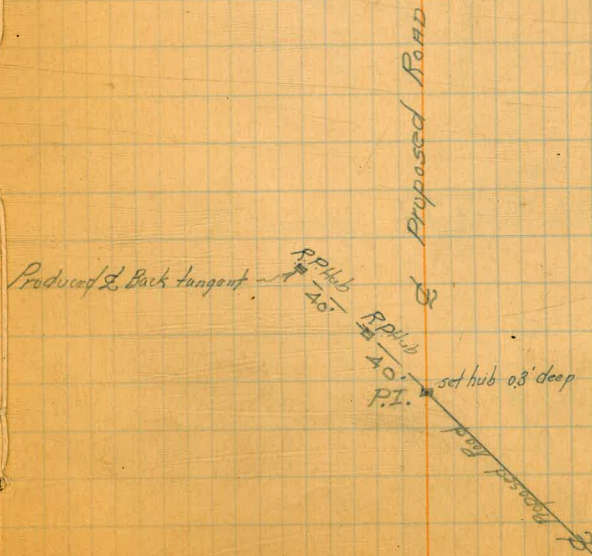 ℄ Proposed ROAD
Produced ℄ Back tangent
R.P. Hub
40'
R.P. Hub
40'
P.I.
set hub 0.3' deep
Proposed Road
℄